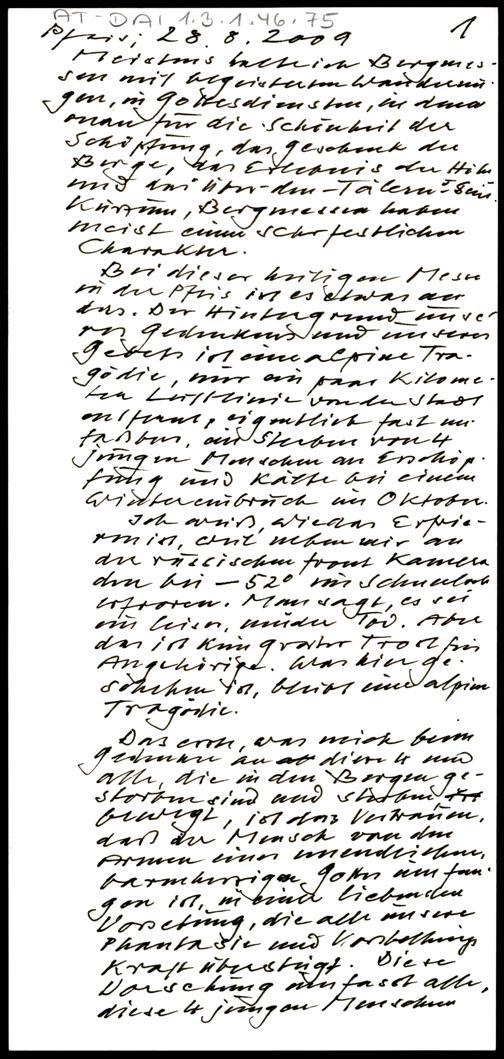 AT-DAI 1.3.1.46.75
Pfeis, 28.8.2009 1
Meistens halte ich Bergmes-
sen mit begeisterten Wanderun-
gen, in Gottesdiensten, in denen
man für die Schönheit der
Schöpfung, das Geschenk der
Berge, das Erlebnis der Höhe
und das Über-den-Tälern-Sein.
Kurzum, Bergmessen haben
meist einen sehr festlichen
Charakter.
Bei dieser heiligen Messe
in der Pfeis ist es etwas an-
das. Der Hintergrund unse-
res Gedenkens und unseres
Gebets ist eine alpine Tra-
gödie, nur ein paar Kilome-
ter Luftlinie von der Stadt
entfernt, eigentlich fast un-
faßbar, ein Sterben von 4
jungen Menschen an Erschöp-
fung und Kälte bei einem
Wintereinbruch im Oktober.
Ich weiß, wie das Erfrie-
ren ist, weil neben mir an
der russischen Front Kamera-
den bei -52° im Schneeloch
erfroren. Man sagt, es sei
ein leiser, müder Tod. Aber
das ist kein großer Trost für
Angehörige. Was hier ge-
schehen ist, bleibt eine alpine
Tragödie.
Das erste, was mich beim
Gedenken an diese 4 und
alle, die in den Bergen ge-
storben sind und sterben
bewegt, ist das Vertrauen,
daß der Mensch von den
Armen eines unendlichen,
barmherzigen Gottes umfan-
gen ist, in einer liebenden
Vorsehung, die alle unsere
Phantasie und Vorstellungs
Kraft übersteigt. Diese
Vorsehung umfasst alle,
diese 4 jungen Menschen